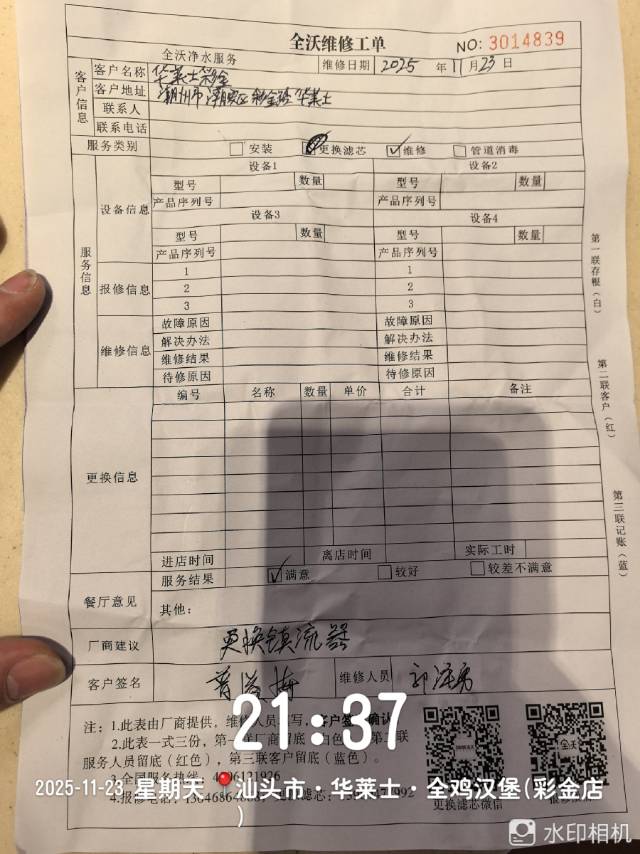 全沃维修工单
NO: 3014839
全沃净水服务 维修日期 2025 年 11 月 23 日
客户信息
客户名称 华莱士彩金
客户地址 潮州市潮安区彩金路华莱士
联系人
联系电话
服务类别 安装 更换滤芯 维修 管道消毒
服务信息
设备信息
设备1 设备2
型号 数量 型号 数量
产品序列号 产品序列号
设备3 设备4
型号 数量 型号 数量
产品序列号 产品序列号
报修信息
1 1
2 2
3 3
维修信息
故障原因 故障原因
解决办法 解决办法
维修结果 维修结果
待修原因 待修原因
更换信息
编号 名称 数量 单价 合计 备注
进店时间 离店时间 实际工时
服务结果 满意 较好 较差不满意
餐厅意见 其他:
厂商建议 更换镇流器
客户签名 维修人员
第一联存根(白)
第二联客户(红)
第三联记账(蓝)
注: 1.此表由厂商提供,维修人员填写,客户签名确认
2.此表一式三份,第一联 白色 第二联
服务人员留底(红色),第三联客户留底(蓝色)。
3.全国服务热线:
4.报修电话:
更换滤芯微信
21:37
2025-11-23 星期天 汕头市·华莱士·全鸡汉堡(彩金店
)
水印相机